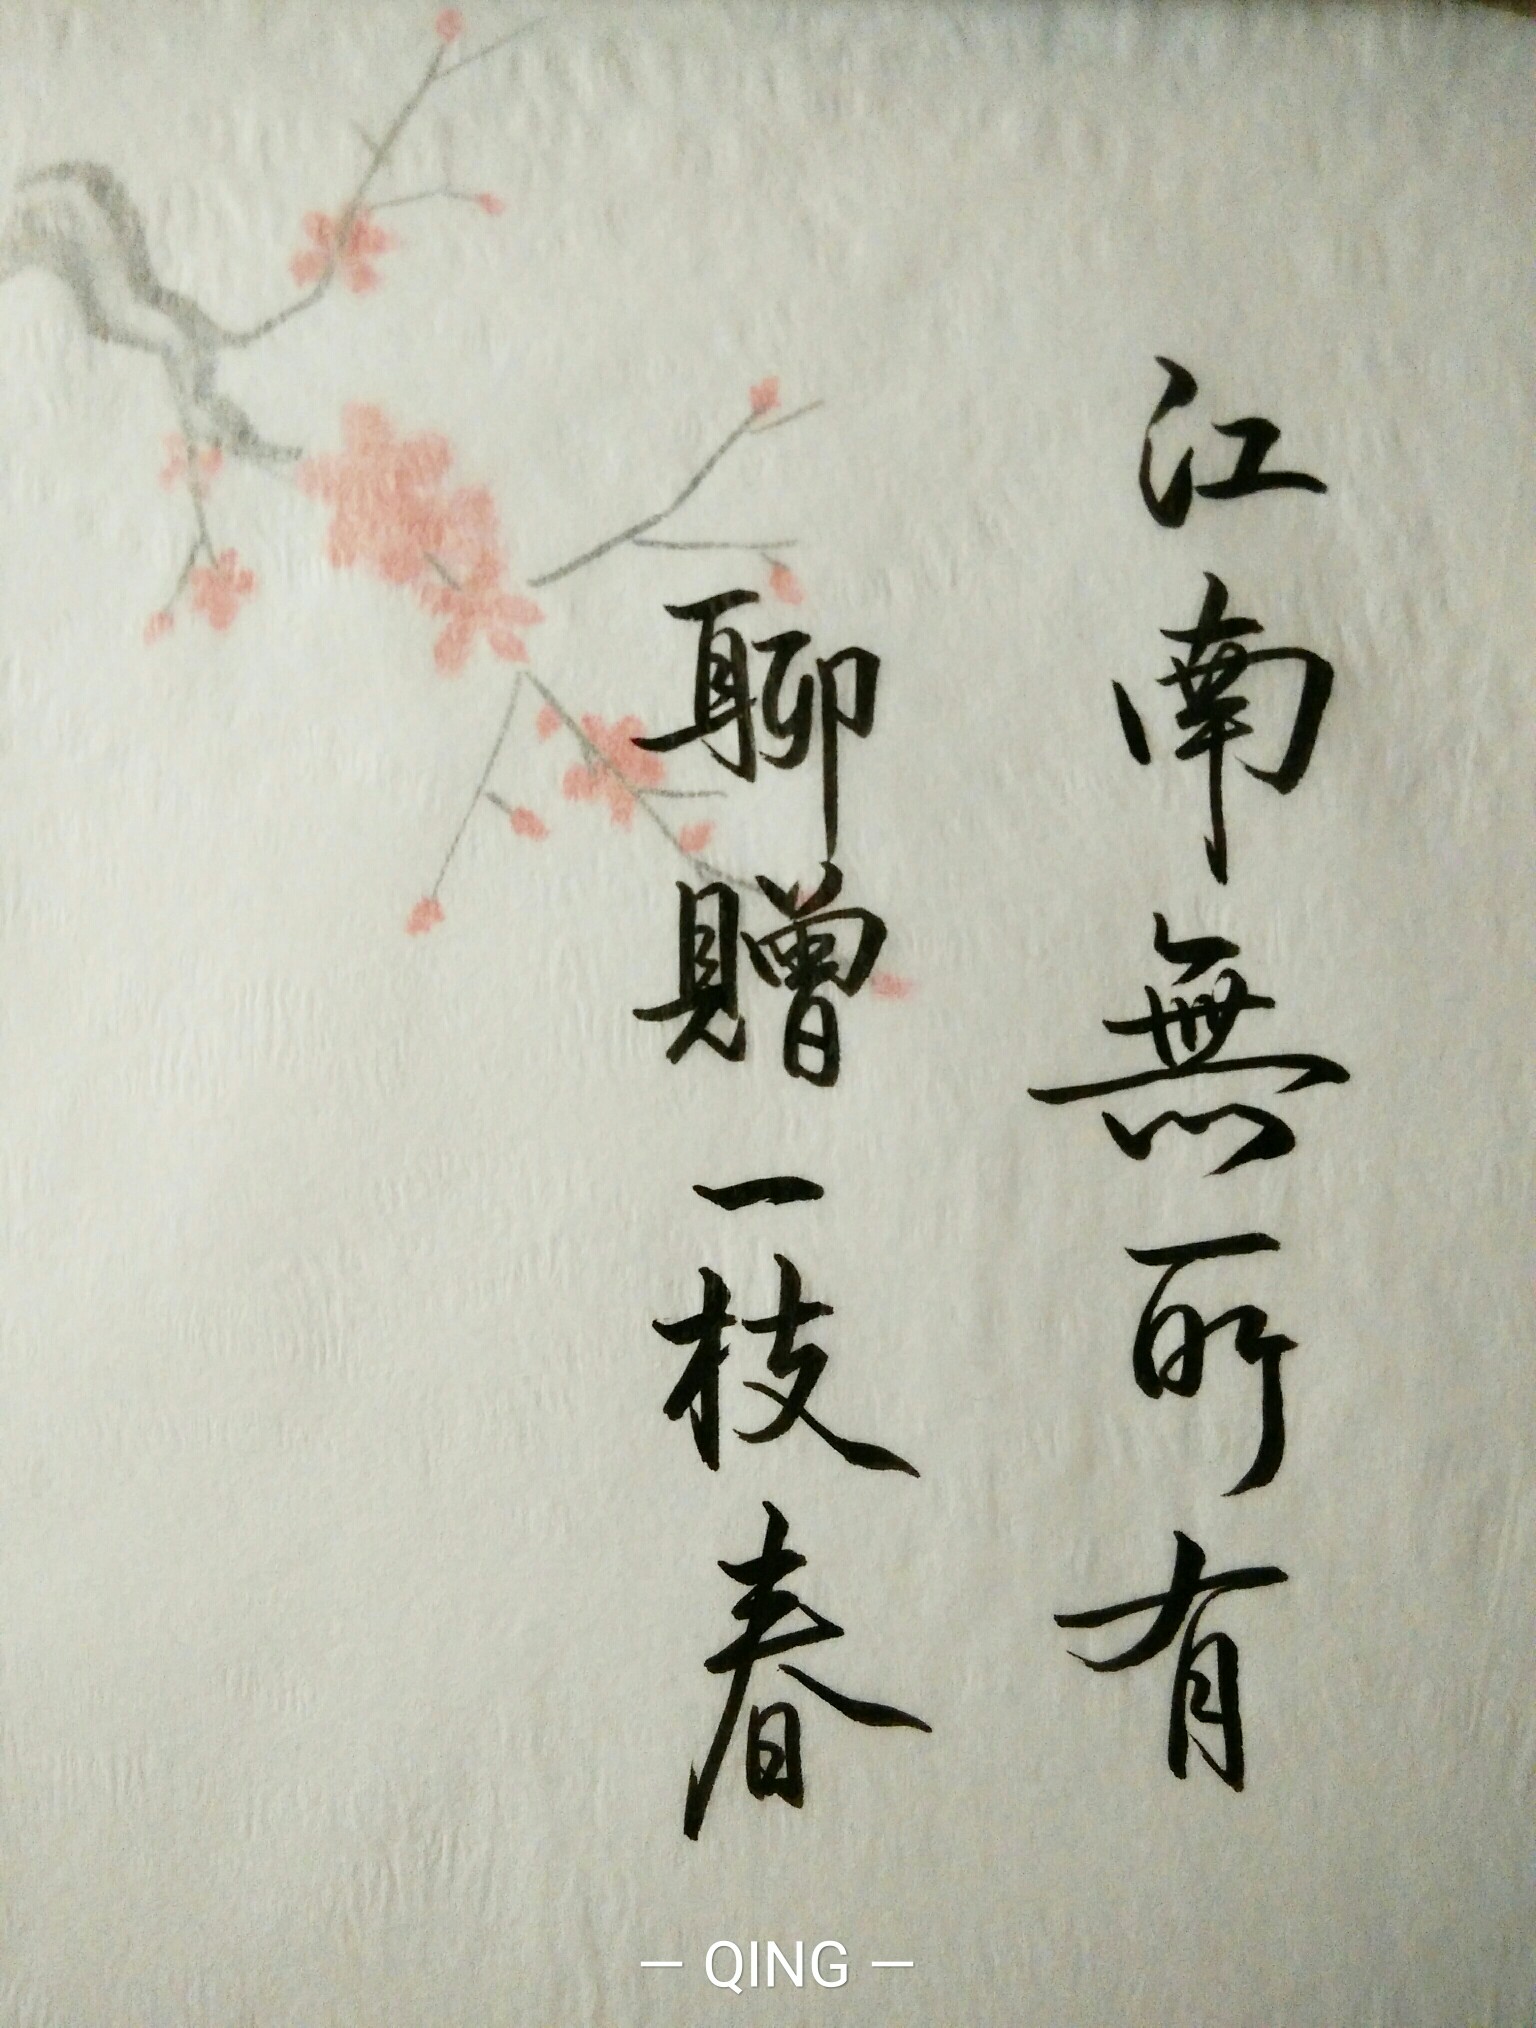 江南無所有
聊贈一枝春
— QING —